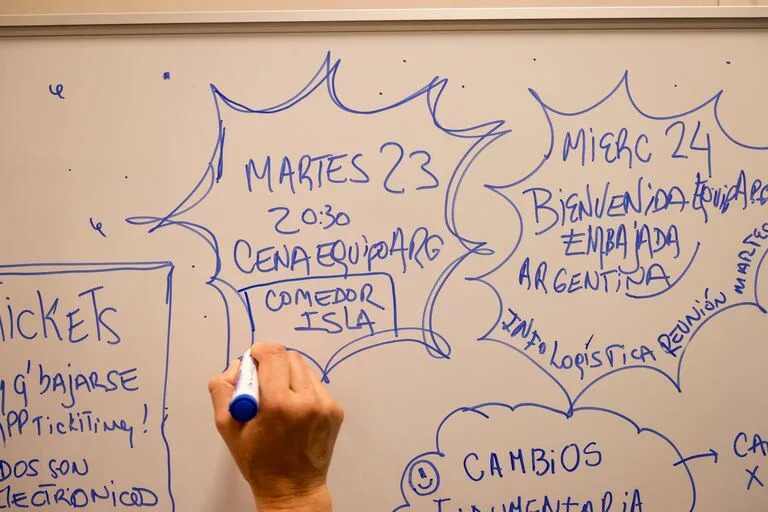 MARTES 23
20:30
CENA EQUIPO ARG
COMEDOR
ISLA
MIERC 24
BIENVENIDA EQUIPO ARG
EMBAJADA
ARGENTINA
INFO LOGÍSTICA REUNIÓN MARTES
TICKETS
Q' BAJARSE
APP TICKITING!
DOS SON
ELECTRONICOS
CAMBIOS
INDUMENTARIA
CA
X